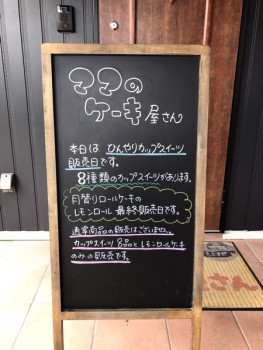 ママの
ケーキ屋さん
本日は ひんやりカップスイーツ
販売日です。
8種類のカップスイーツがあります。
月替りロールケーキの
レモンロール 最終販売日です。
通常商品の販売はございません。
カップスイーツ 8品とレモンロールケーキ
のみの販売です。
屋さん